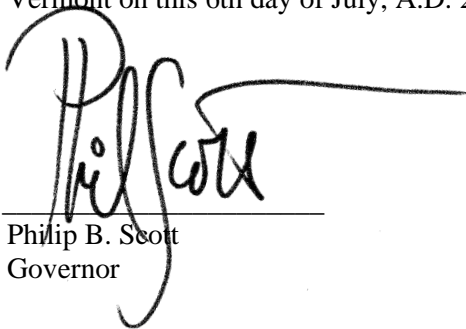 Vermont on this 6th day of July, A.D. 2
Phil Scott
Philip B. Scott
Governor